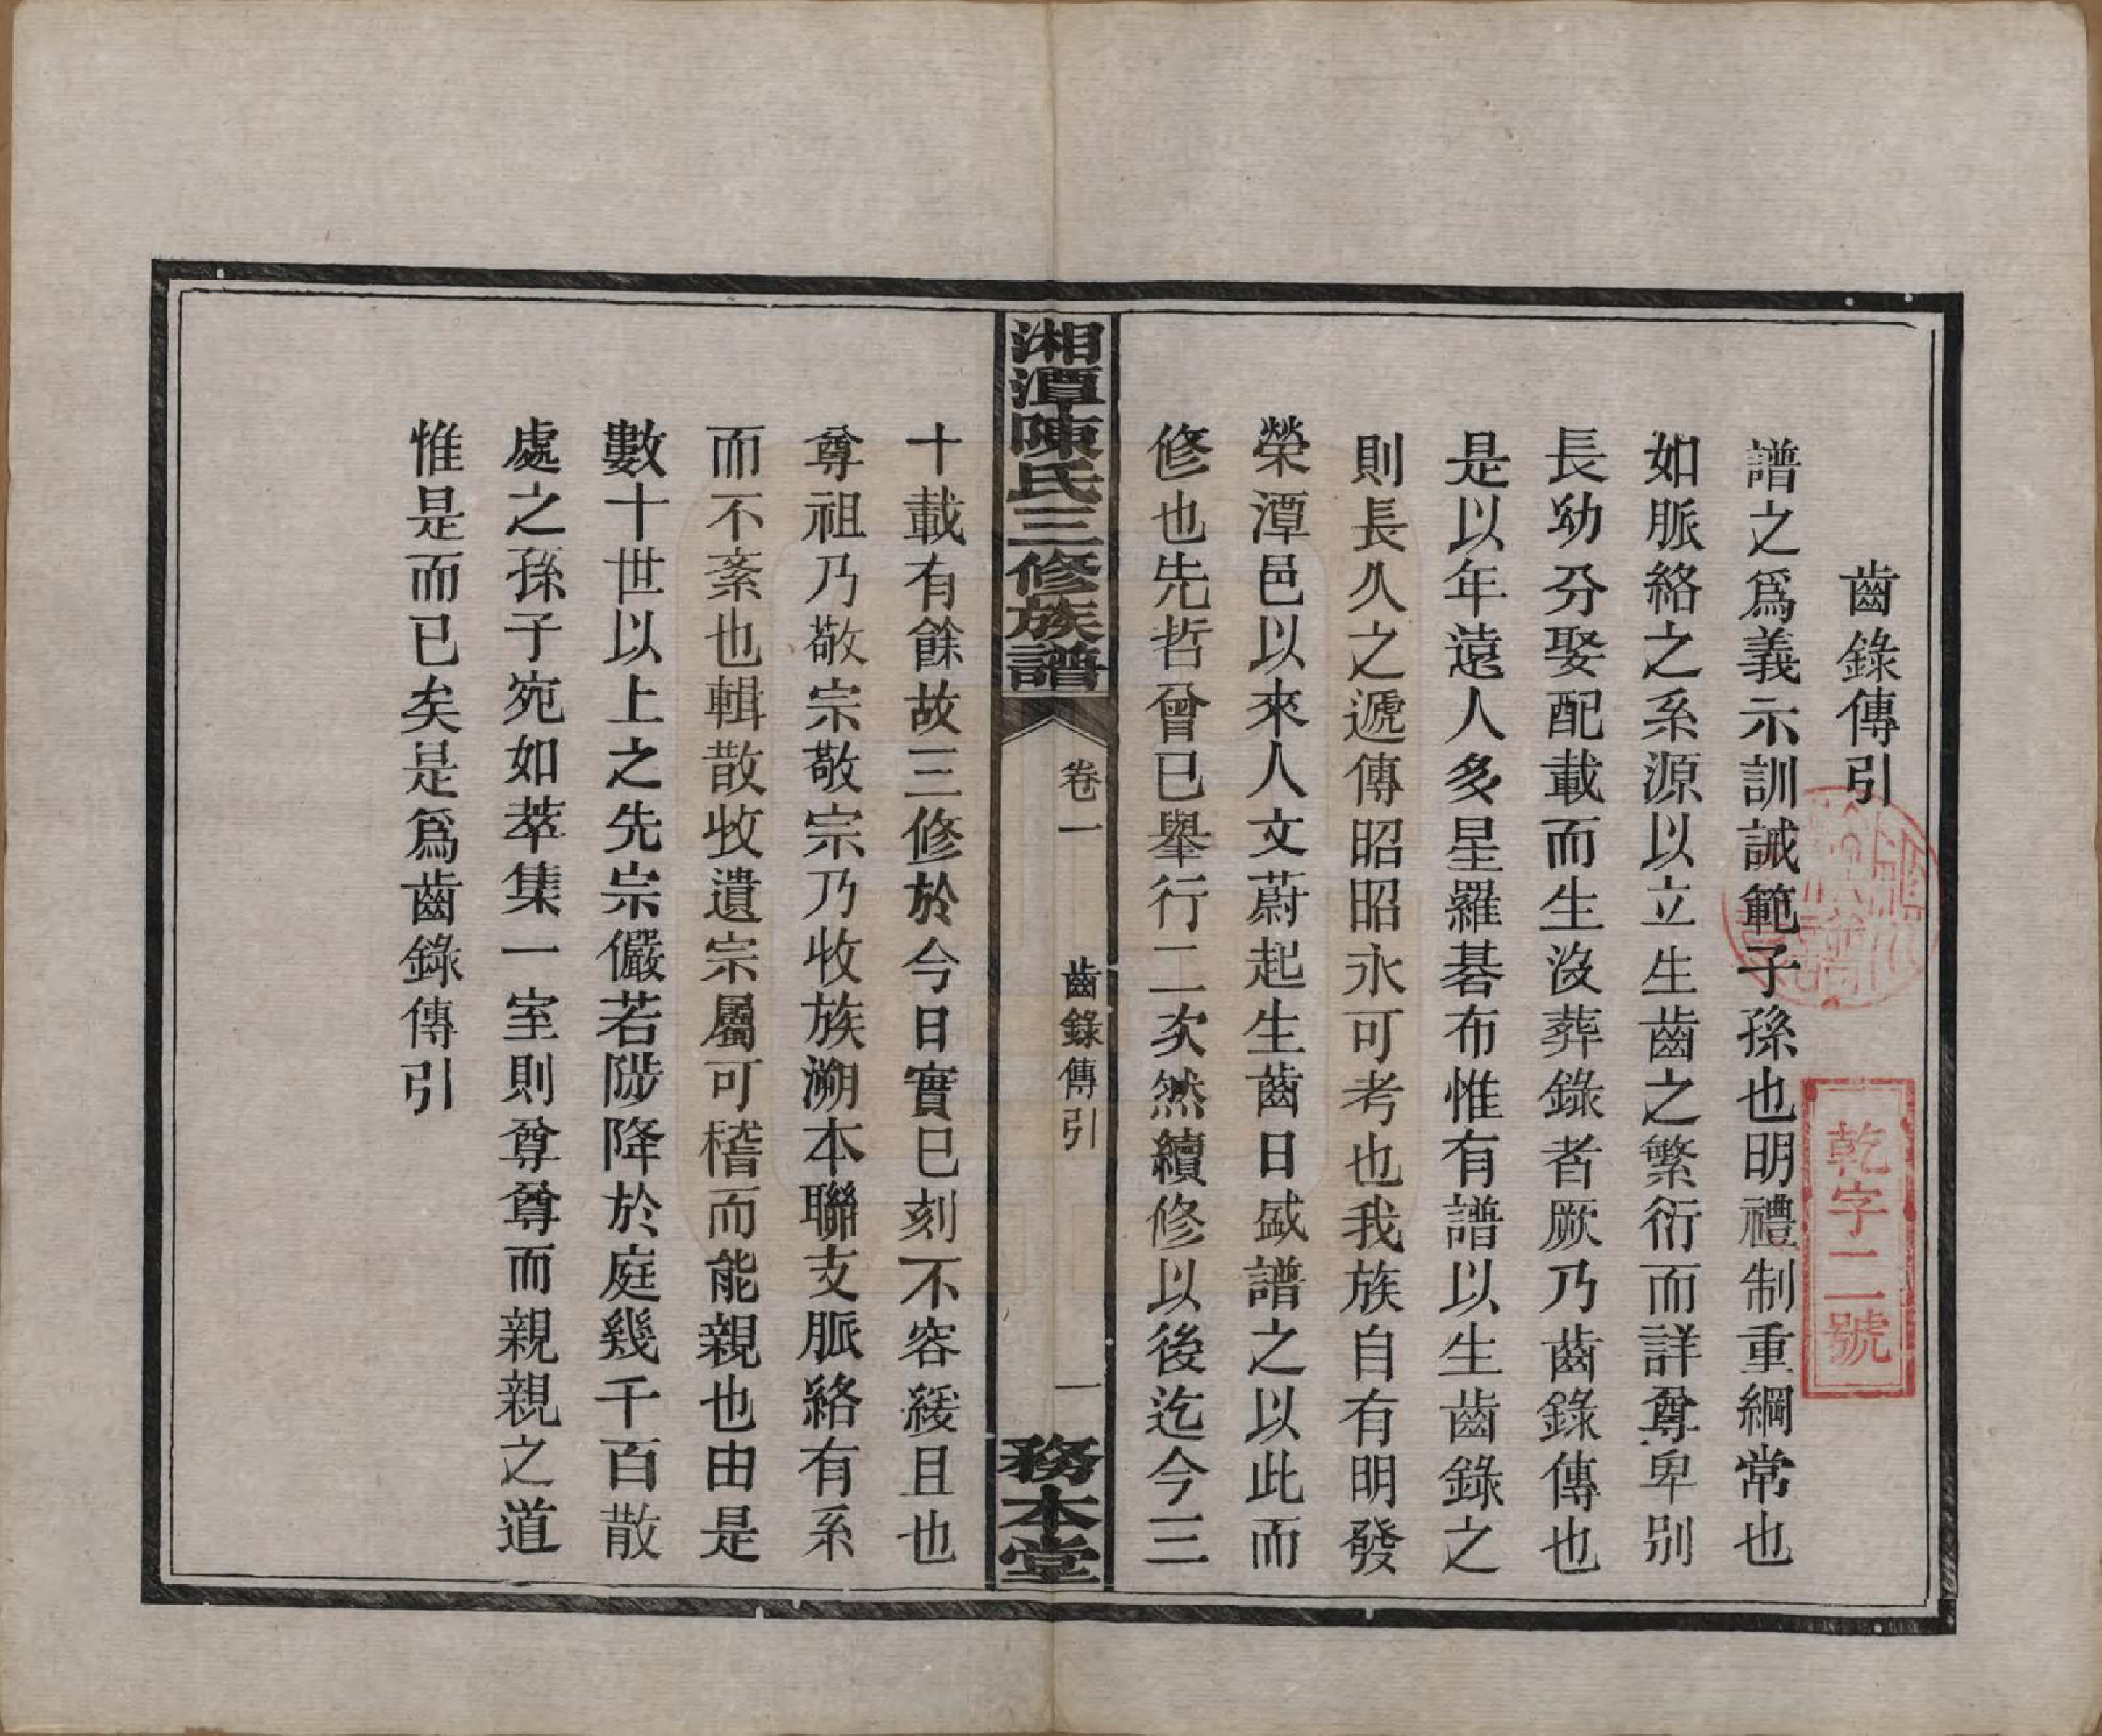 齒錄傳引
譜之爲義示訓誡範子孫也明禮制重綱常也
如脈絡之系源以立生齒之繁衍而詳尊卑别
長幼分娶配載而生没葬錄者厥乃齒錄傳也
是以年遠人多星羅碁布惟有譜以生齒錄之
則長久之遞傳昭昭永可考也我族自有明發
榮潭邑以來人文蔚起生齒日盛譜之以此而
修也先哲曾已舉行二次然續修以後迄今三
湘潭陳氏三修族譜
卷一
齒錄傳引
一
務本堂
十載有餘故三修於今日實已刻不容緩且也
尊祖乃敬宗敬宗乃收族溯本聯支脈絡有系
而不紊也輯散收遺宗屬可稽而能親也由是
數十世以上之先宗儼若陟降於庭幾千百散
處之孫子宛如萃集一室則尊尊而親親之道
惟是而已矣是爲齒錄傳引
乾字二號